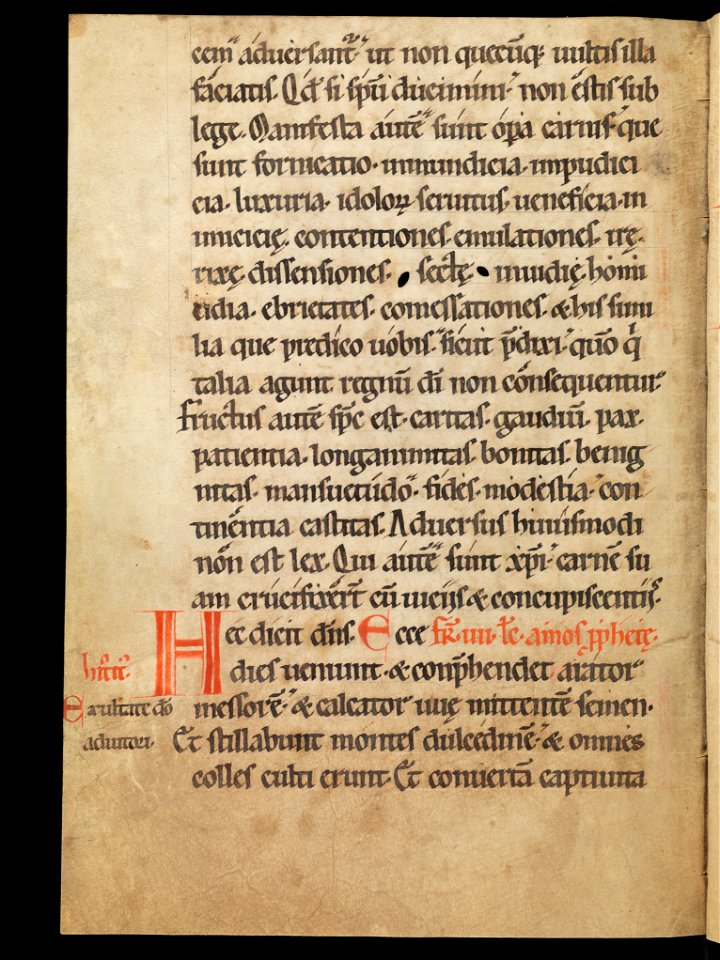 cem adversant̄ ut non quecūq; uultis illa
faciatis. Qd̄ si sp̄u ducimini non estis sub
lege. Manifesta autē sunt op̄a carnis que
sunt fornicatio. inmundicia. impudici
cia. luxuria. idoloꝝ seruitus. ueneficia. in
imicicię. contentiones. emulationes. irę.
rixę. dissensiones. sectę. inuidię. homi
cidia. ebrietates. comessationes. & his simi
lia que predico uobis. sicut p̄dixi quō q̇
talia agunt regnū dī non consequentur
fructus autē sp̄c est. caritas. gaudiū. pax.
patientia. longanimitas. bonitas. benig
nitas. mansuetudo. fides. modestia. con
tinentia castitas. Aduersus huiuſmodi
non est lex. Qui autē sunt xp̄i carnē su
am crucifixer̄t cū uiciis & concupiscentiis.
Hec dicit dn̄s. Ecce fr̄. iiii. lc̄. amos p̄phetę.
dies ueniunt. & conp̄hendet arator
Exultate dō
messorē. & calcator uuę mittentē semen.
adiutori.
Et stillabunt montes dulcedinē. & omnes
colles culti erunt. Et conuertā captiuita